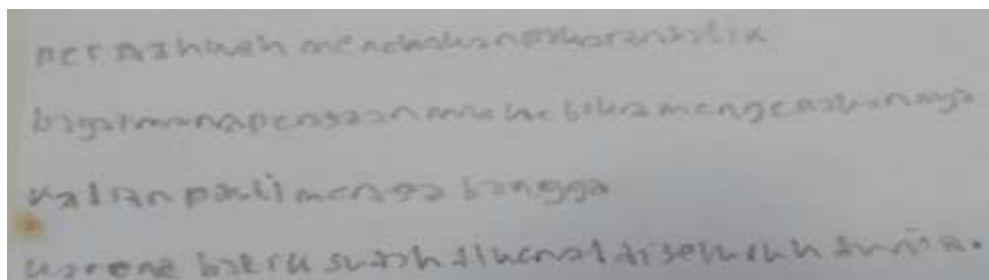 pernahkah menenakanpakaianbatik
bagaimanaperasaanmu ketika mengenakannya
kalian pasti merasa bangga
karena batik sudah dikenal diseluruh dunia.